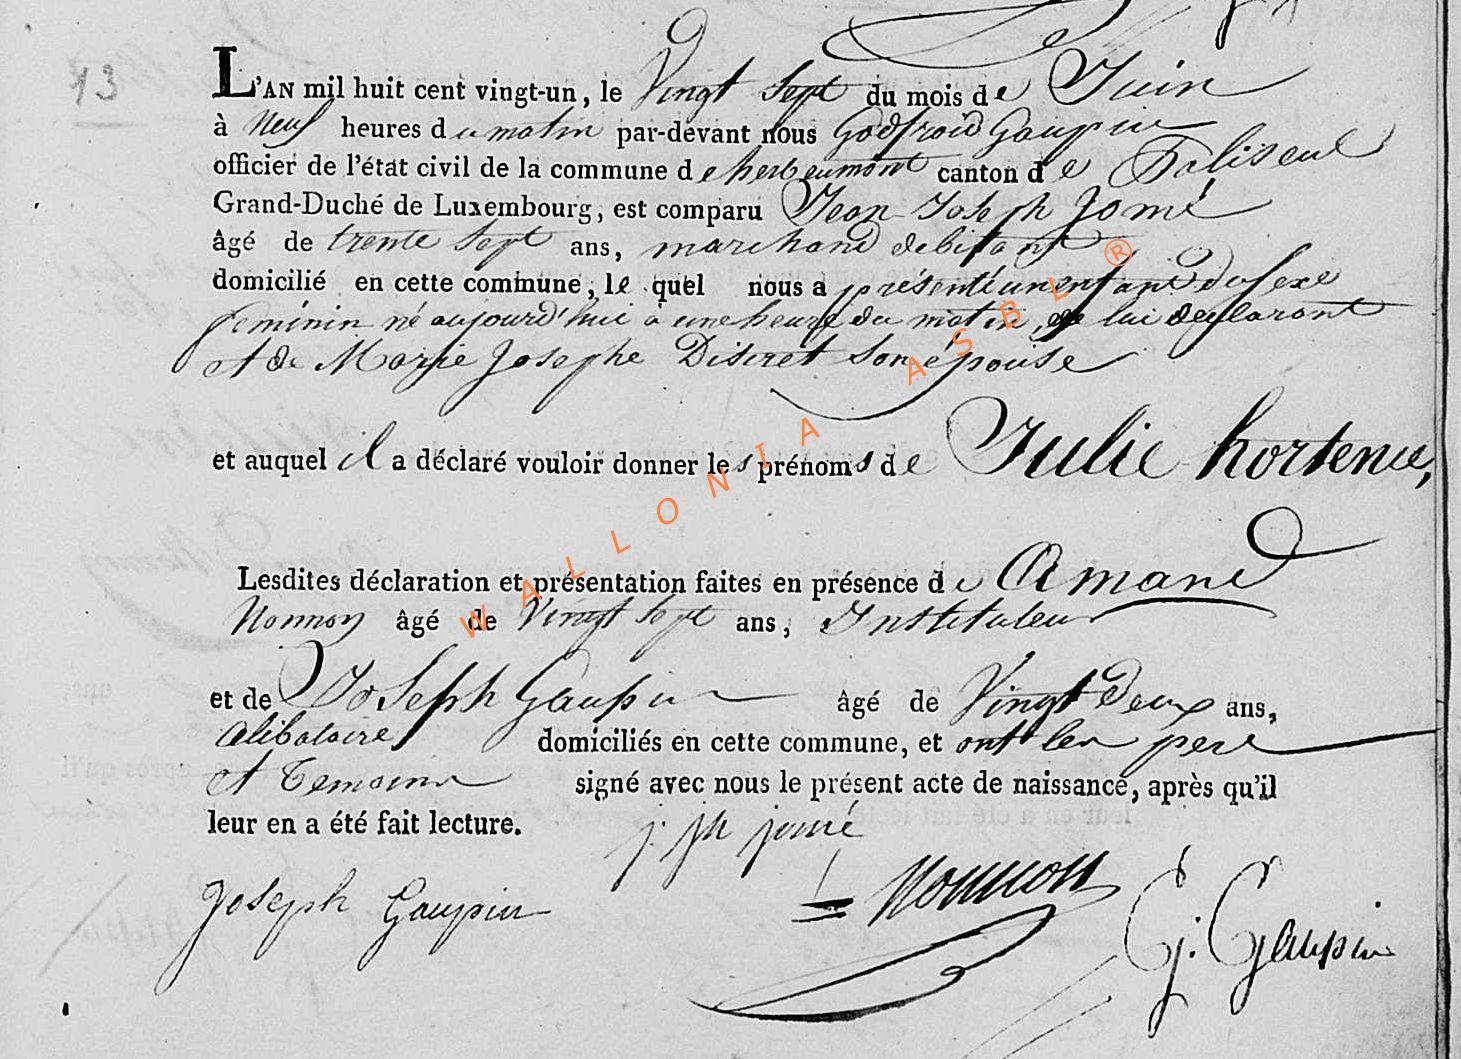 13
L'AN mil huit cent vingt-un, le Vingt Sept du mois de Juin
à Neuf heures du matin par-devant nous Godfroid Gaupin
officier de l'état civil de la commune de herbeumont canton de Paliseul
Grand-Duché de Luxembourg, est comparu Jean Joseph Jomé
âgé de trente Sept ans, marchand debitant
domicilié en cette commune, le quel nous a présenté un enfant du Sexe
feminin né aujourd'hui a une heure du matin, de lui declarant
et de Marie Josephe Discret Son épouse
et auquel il a déclaré vouloir donner les prénoms de Julie hortence,
Lesdites déclaration et présentation faites en présence de Amand
Nonnon âgé de Vingt Sept ans, Instituteur
et de Joseph Gaupin âgé de Vingt Deux ans,
Celibataire domiciliés en cette commune, et ont les pere
et Temoins signé avec nous le présent acte de naissance, après qu'il
leur en a été fait lecture.
j. jph jomé
Joseph Gaupin Nonnon G. Gaupin
WALLONIA ASBL ®